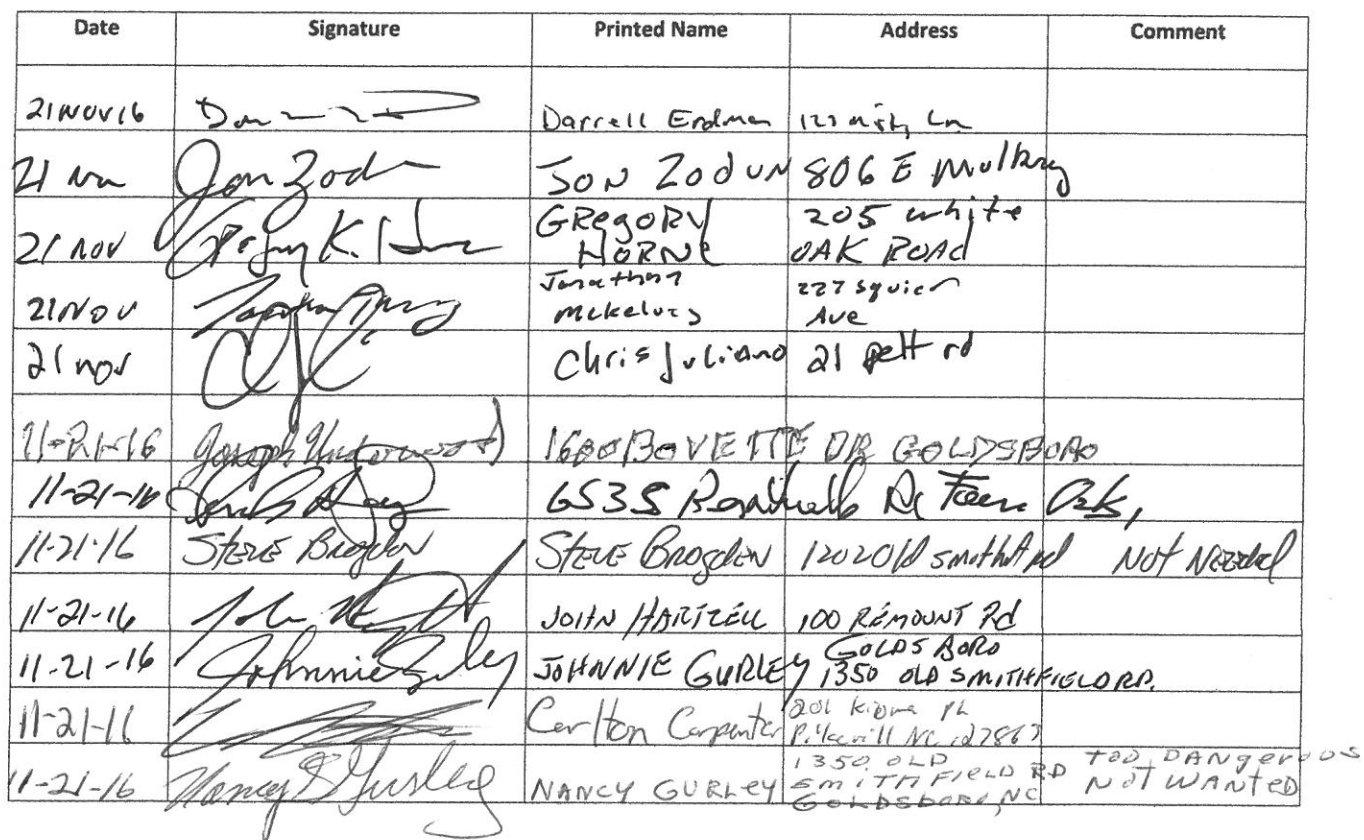 Date Signature Printed Name Address Comment
21NOV16 Darrell Erdman 123 Misty Ln
21 Jon Zod JON ZODUN 806 E Mulberry
21 nov Gregory K. Horne GREGORY HORNE 205 white OAK ROAD
21NOV Jonathan 227 Ave
21 nov Chris Juliano 21 rd
11-21-16 Joseph Underwood 1600 BOVETTE DR GOLDSBORO
11-21-16 6535 Rd
11-21-16 STEVE Brogden STEVE BROGDEN 1202 Old rd Not Needed
11-21-16 John JOHN HARTZELL 100 REMOUNT Rd
11-21-16 Johnnie Gurley JOHNNIE GURLEY GOLDSBORO 1350 OLD SMITHFIELD RD.
11-21-16 Carlton Carpenter 201 NC
11-21-16 Nancy S Gurley NANCY GURLEY 1350 OLD SMITHFIELD RD GOLDSBORO, NC TOO DANgerous NOT WANTED